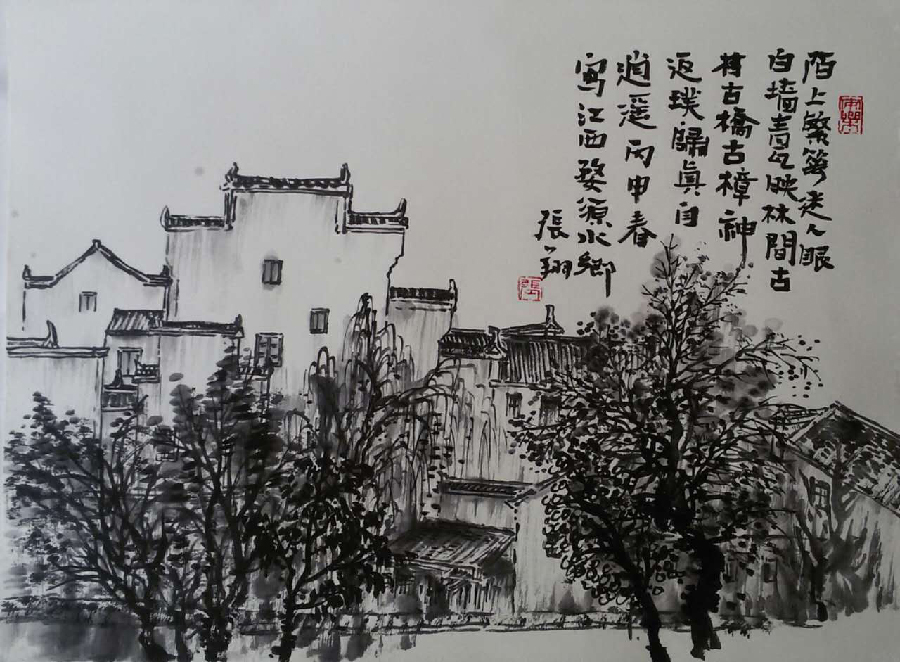 陌上繁華迷人眼
白墙青瓦映林間古
村古橋古樟神
返璞歸真自
逍遥丙申春
寫江西婺源水鄉
張翔